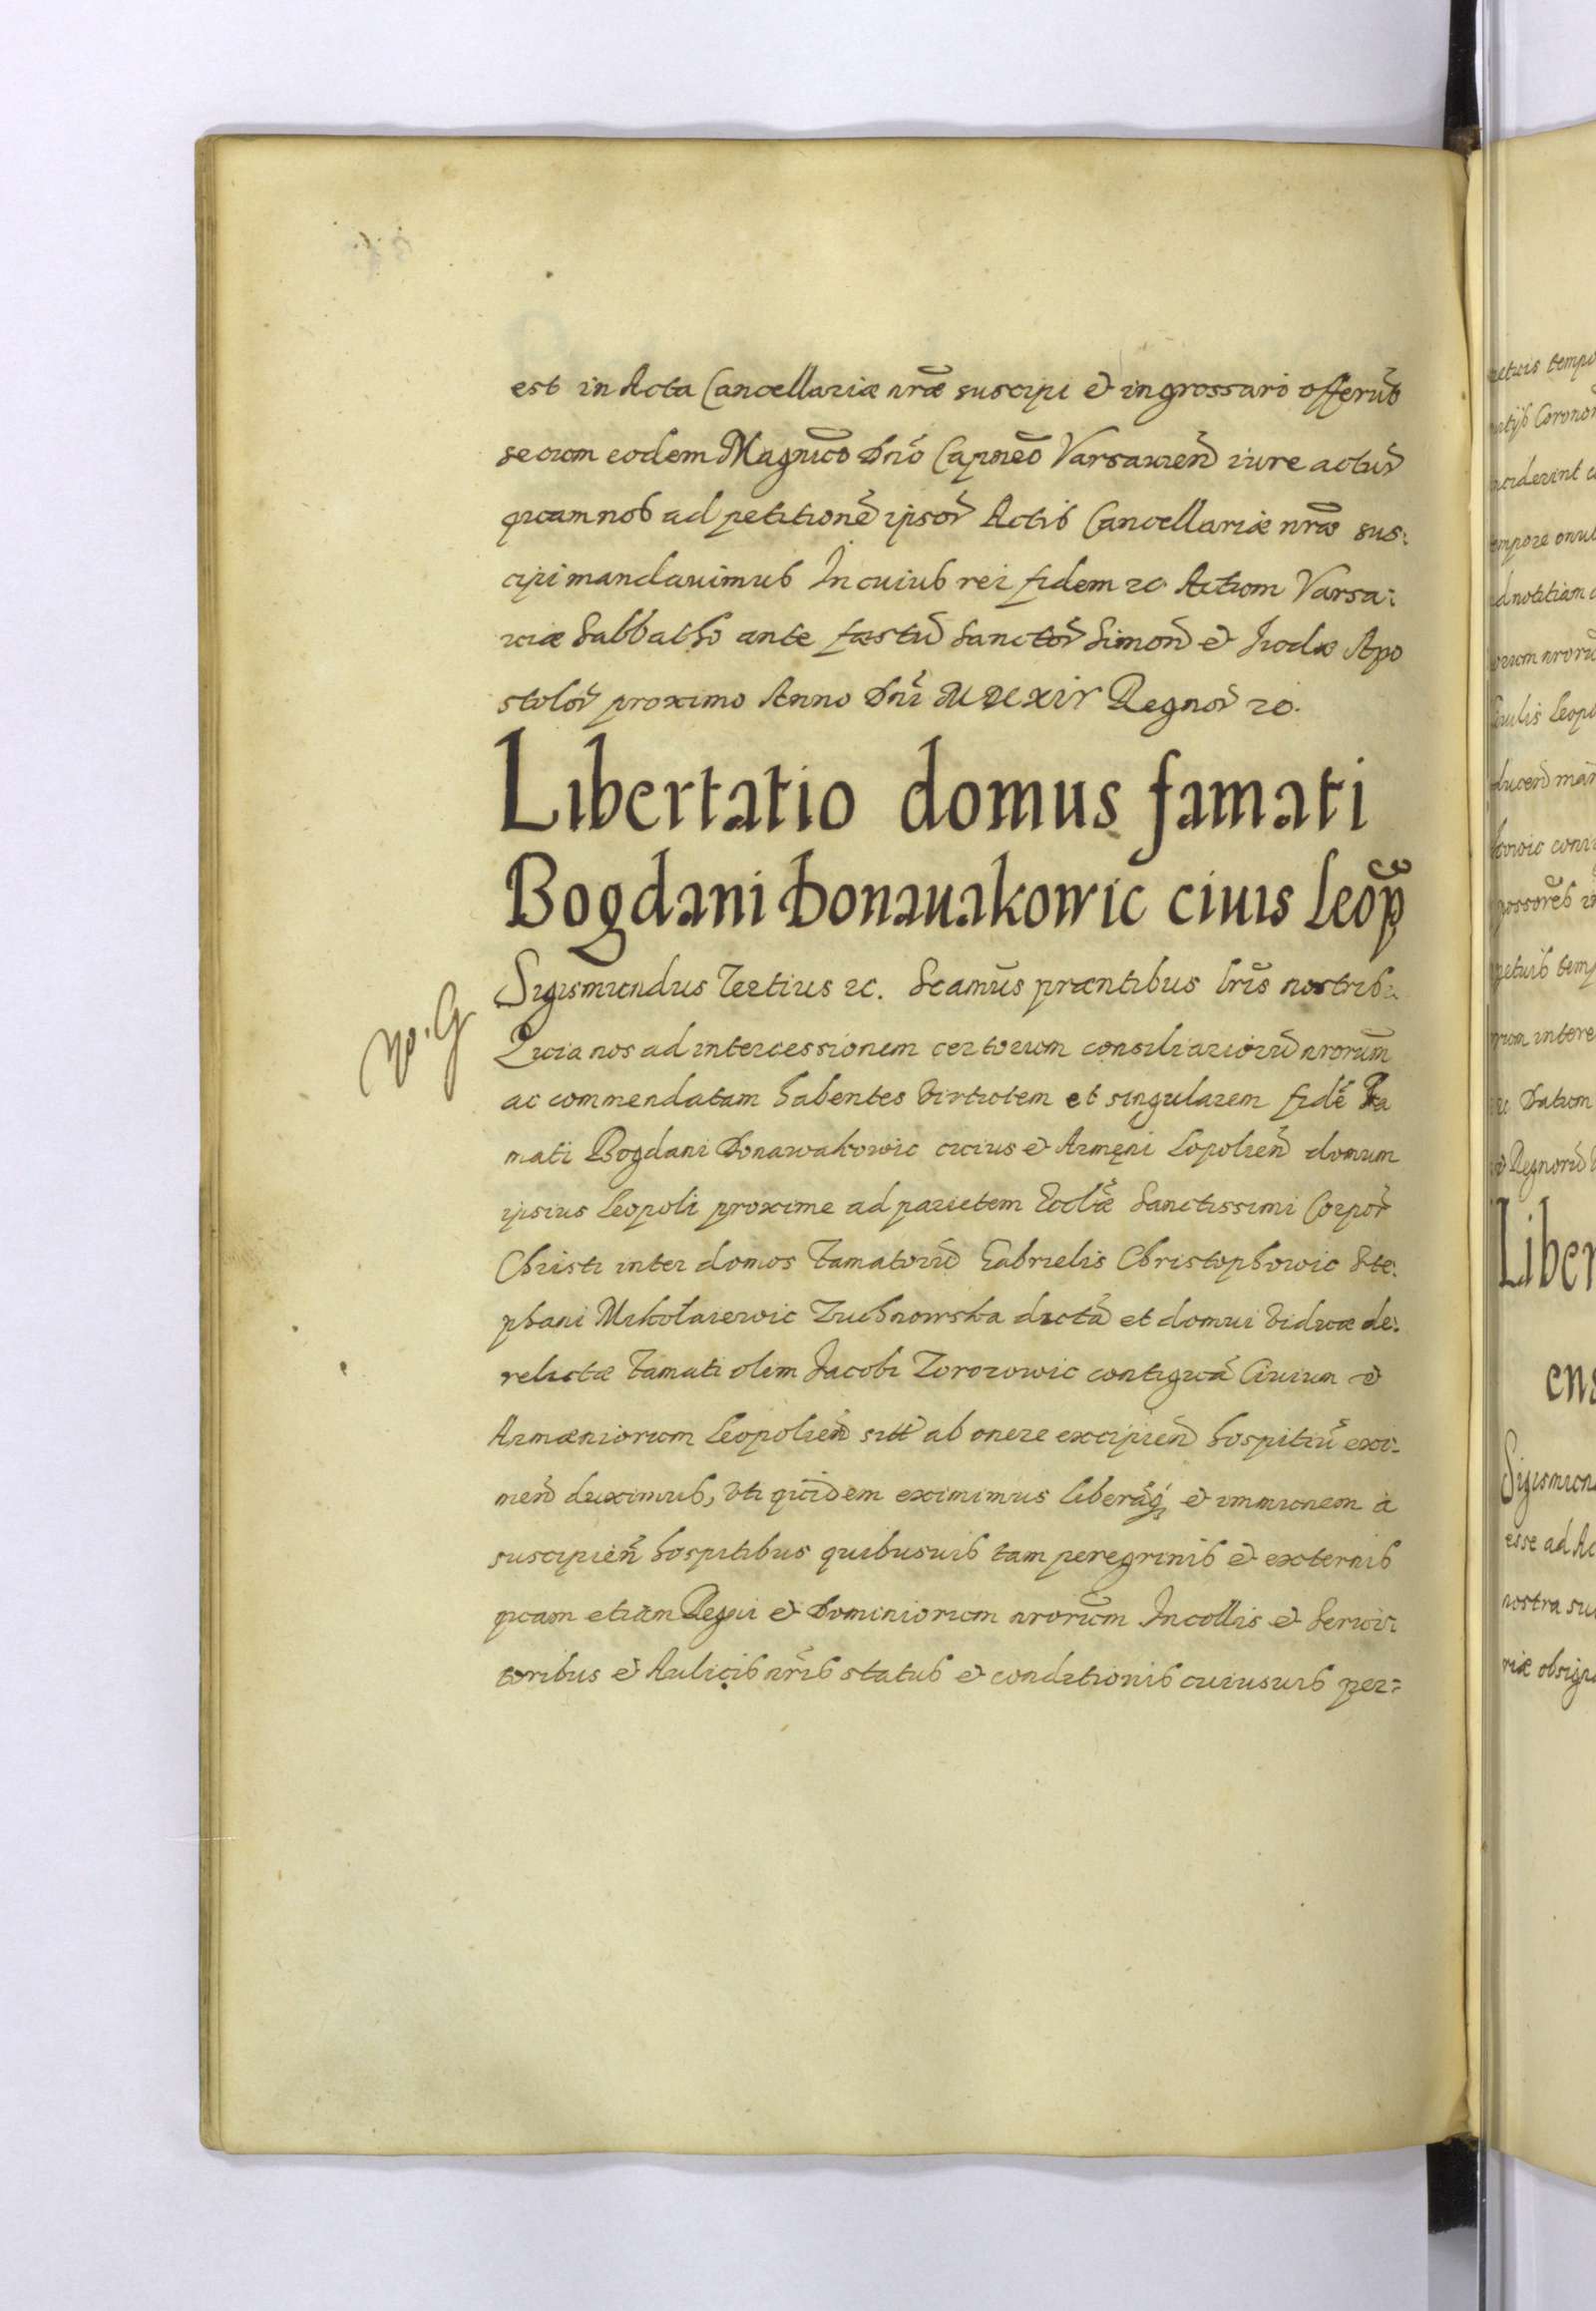 est in Acta Cancellariæ nr̃æ suscipi et ingrossari offerũt
se cum eodem Magñco Dnõ Capñeo Varsavieñ iure actur̃
quam nos ad petitionẽ ipsor̃ Actis Cancellariæ nr̃æ sus:
cipi mandavimus In cuius rei fidem ꝛc Actum Varsa:
viæ Sabbatho ante fæstũ Sanctor̃ Simoñ et Judæ Apo
stolor̃ proximo Anno Dñi MDCXIV Regnor̃ ꝛc.
Libertatio domus famati
Bogdani Donauakowic ciuis Leop̃
Sigismundus Tertius ꝛc. Scamũs præntibus lr̃is nostris:
Quia nos ad intercessionem certorum consiliariorũ nrorũm
No. G
ac commendatam habentes virtutem et singularem fidẽ Fa
mati Bogdani Donawakowic civius et Armęni Lopolieñ domum
ipsius Leopoli proxime ad parietem Ecclæ̃ Sanctissimi Corpor̃
Christi inter domos Famatorũ Gabrielis Christophowic Ste:
phani Mikołaiewic Zuchnowska dictã et domui viduæ de:
relictæ Famati olim Jacobi Torozowic contiguã Civium et
Armæniorum Leopolieñ sitt̃ ab onere excipieñ hospitiũ exi:
meñ duximus, vti quidem eximimus liberãq; et immunem à
suscipieñ hospitibus quibusuis tam peregrinis et externis
quam etiãm Regni et Dominiorum nrorũm Incollis et Servi:
toribus et Aulicis nr̃is status et conditionis cuiusuis per: